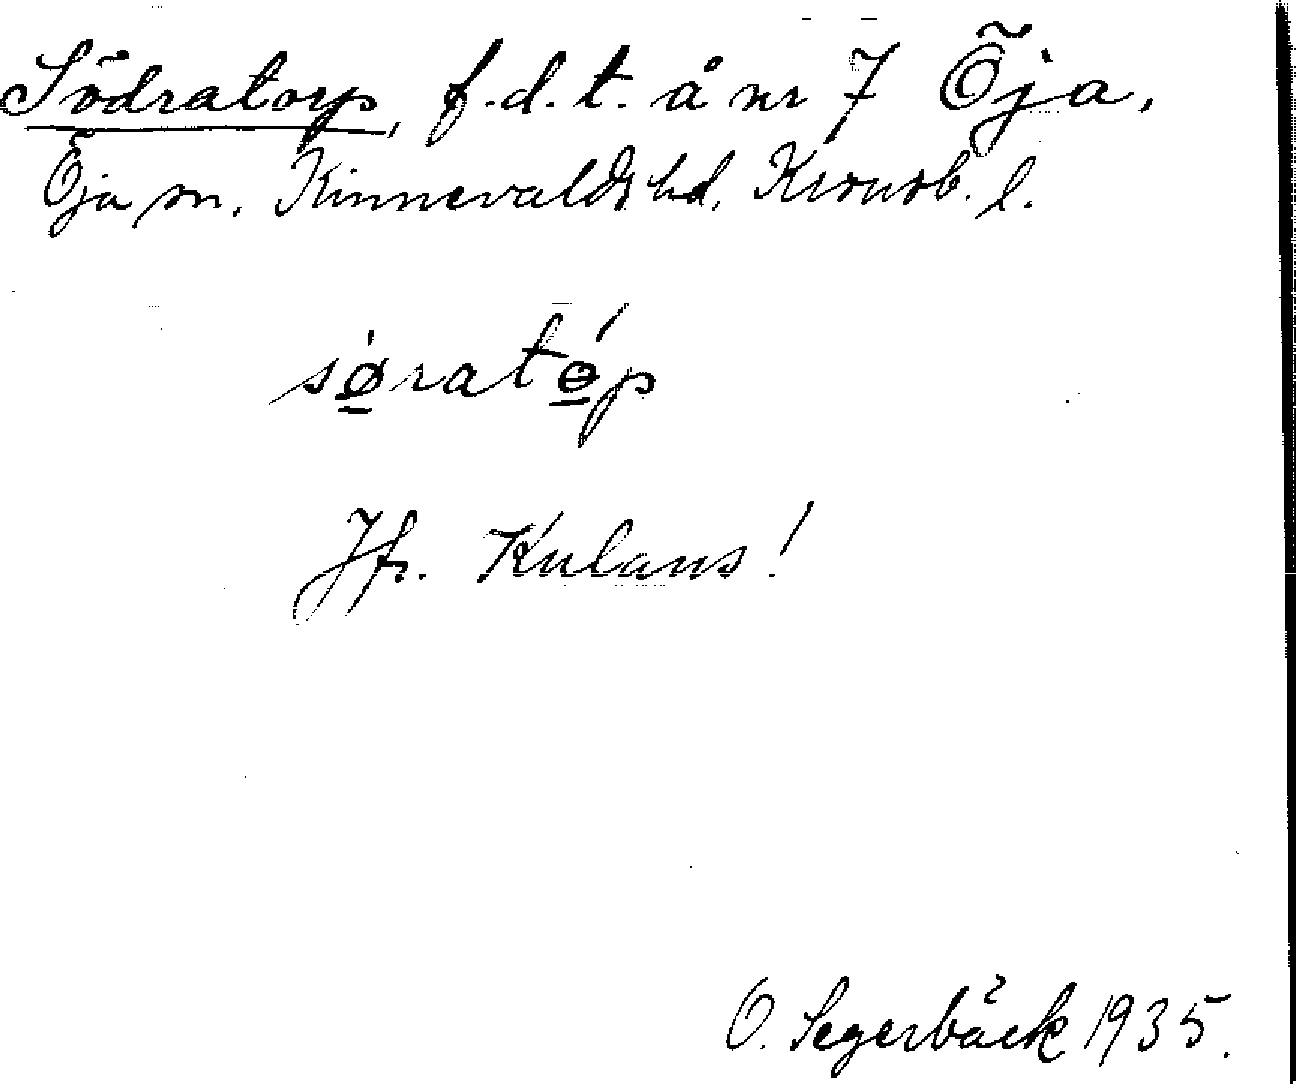 Södratorp, f.d.t. å nr 7 Öja,
Öja sn. Kinnevalds hd, Kronob. l.
søratɵ́p
Jfr. Kulans!
O. Segerbäck 1935.